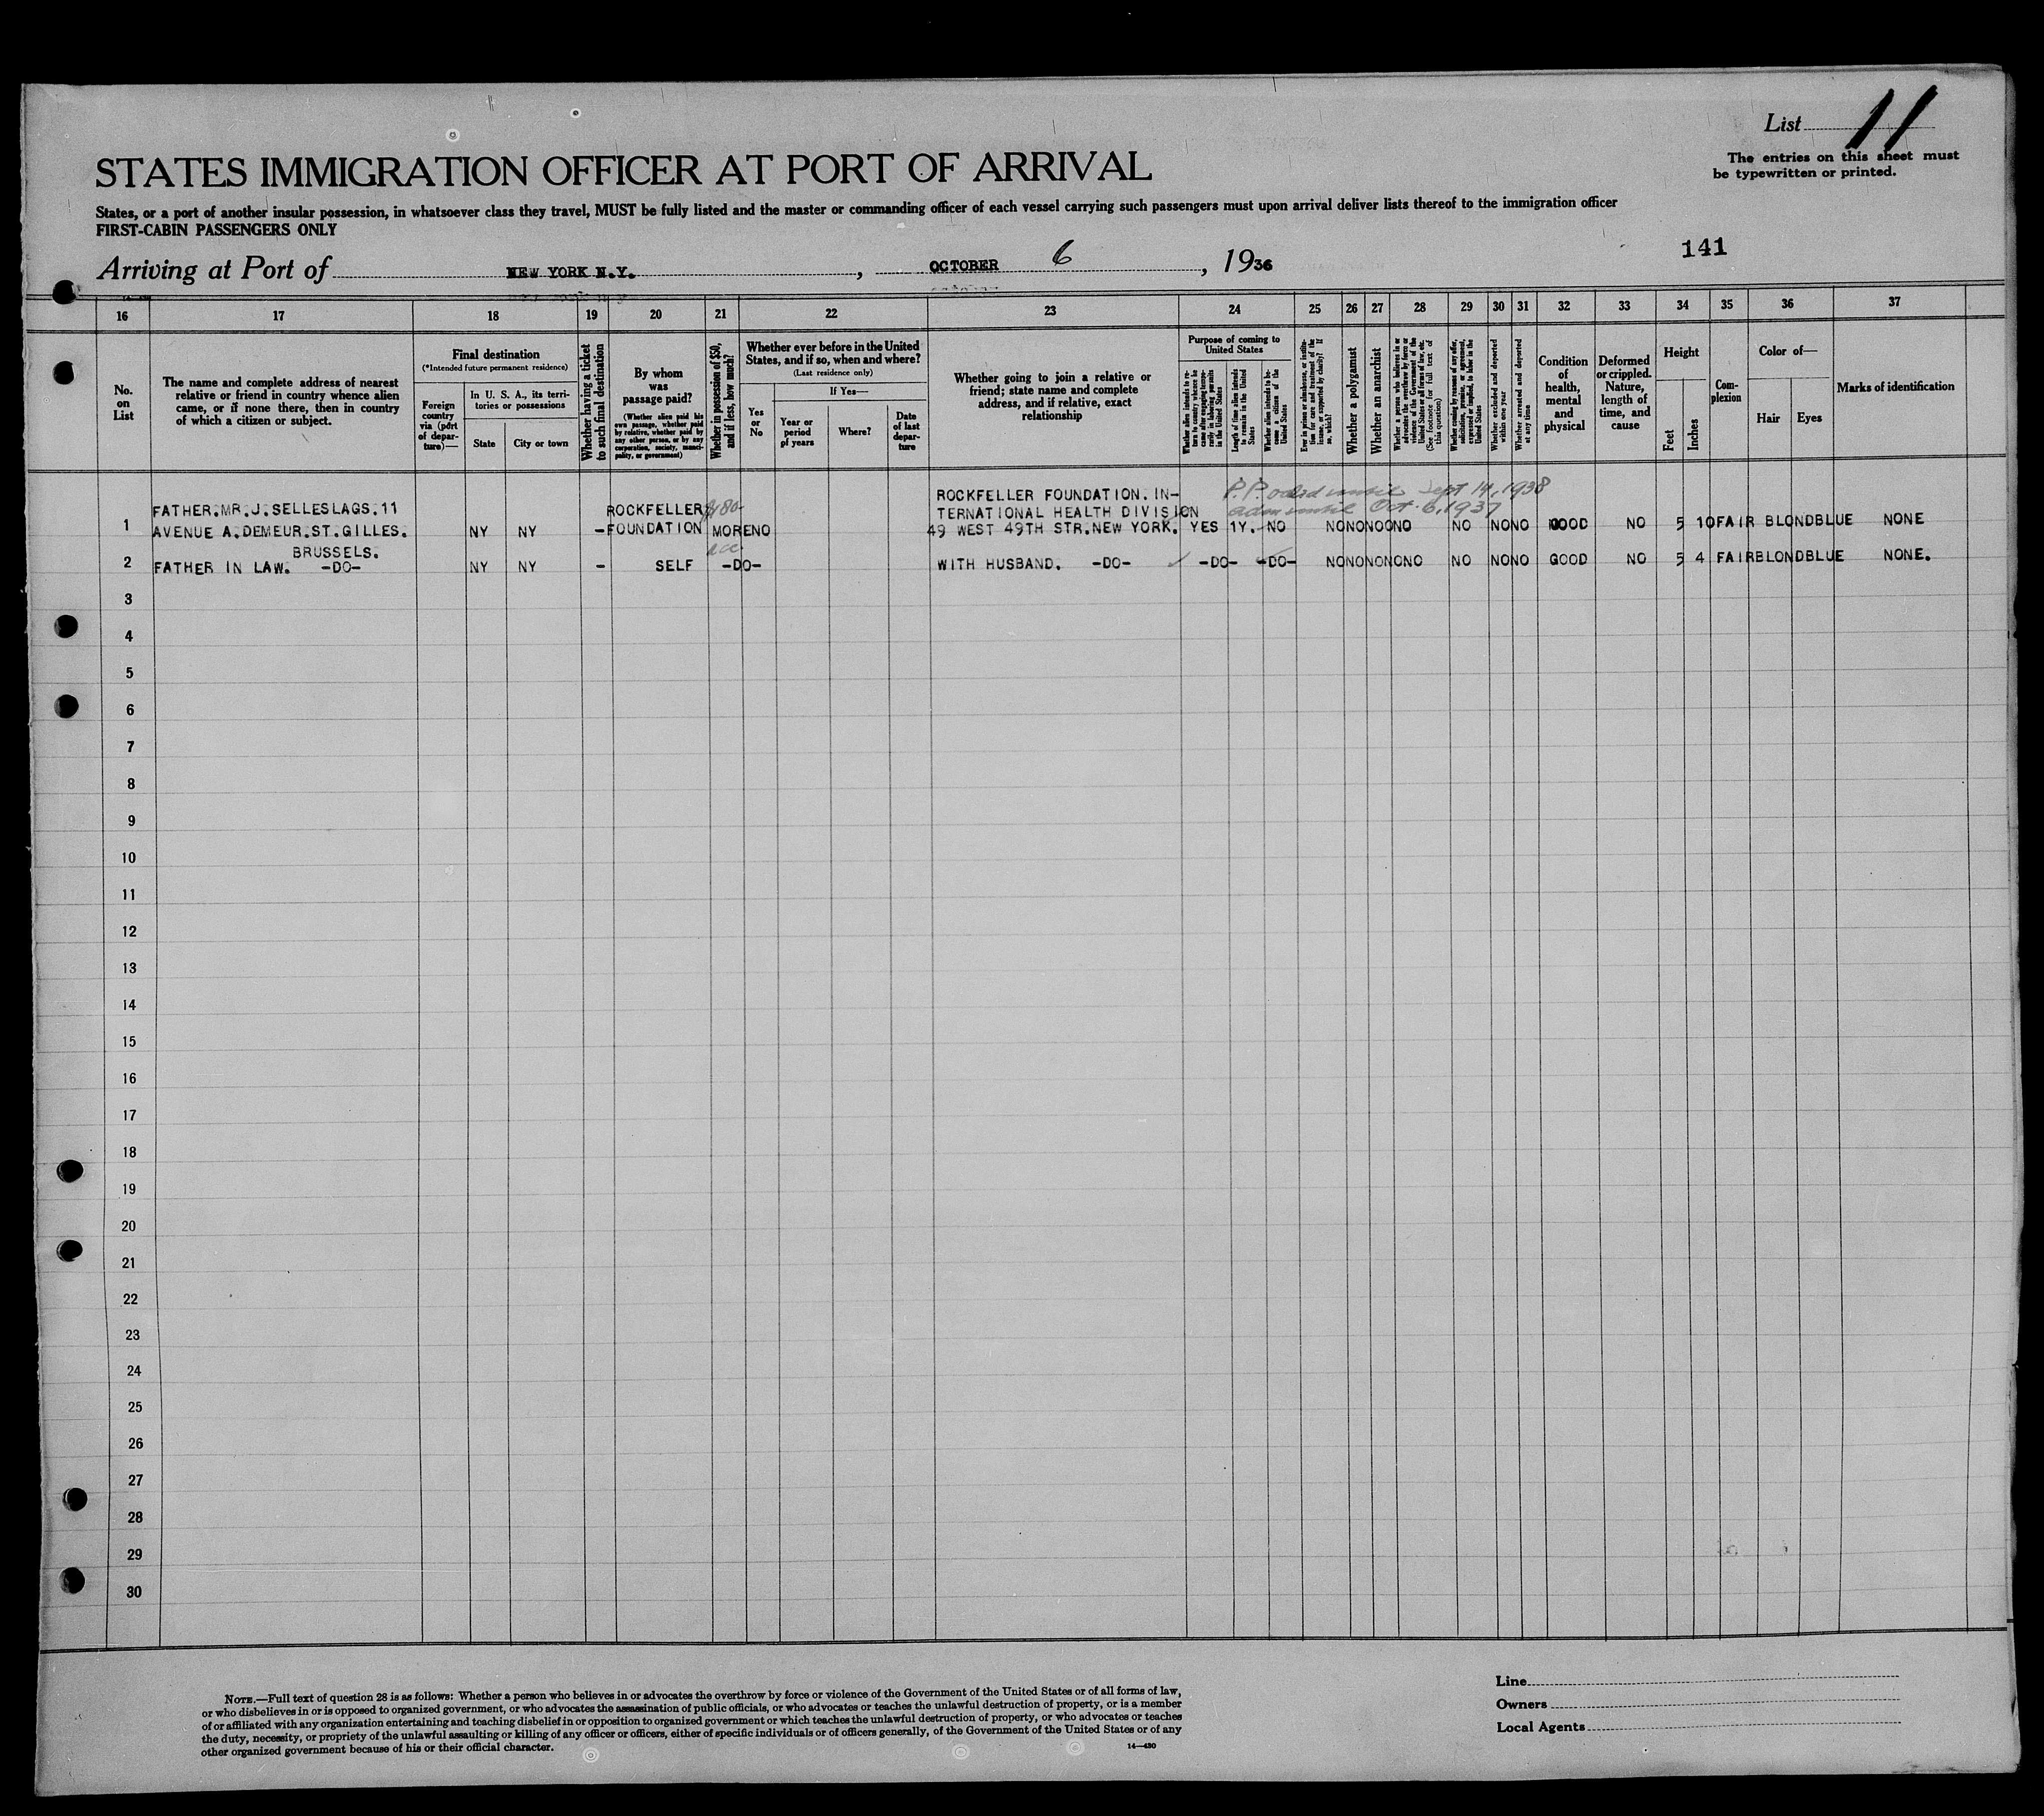 List 11
The entries on this sheet must
be typewritten or printed.
STATES IMMIGRATION OFFICER AT PORT OF ARRIVAL
States, or a port of another insular possession, in whatsoever class they travel, MUST be fully listed and the master or commanding officer of each vessel carrying such passengers must upon arrival deliver lists thereof to the immigration officer
FIRST-CABIN PASSENGERS ONLY
141
Arriving at Port of NEW YORK N.Y. , OCTOBER 6 , 1936
16 17 18 19 20 21 22 23 24 25 26 27 28 29 30 31 32 33 34 35 36 37
No.
on
List
The name and complete address of nearest
relative or friend in country whence alien
came, or if none there, then in country
of which a citizen or subject.
Final destination
(*Intended future permanent residence)
Foreign
country
via (port
of depar-
ture)—
In U. S. A., its terri-
tories or possessions
State
City or town
Whether having a ticket
to such final destination
By whom
was
passage paid?
(Whether alien paid his
own passage, whether paid
by relative, whether paid by
any other person, or by any
corporation, society, munici-
pality, or government)
Whether in possession of $50,
and if less, how much?
Whether ever before in the United
States, and if so, when and where?
(Last residence only)
Yes
or
No
If Yes—
Year or
period
of years
Where?
Date
of last
depar-
ture
Whether going to join a relative or
friend; state name and complete
address, and if relative, exact
relationship
Purpose of coming to
United States
Whether alien intends to re-
turn to country whence he
came after engaging tempo-
rarily in laboring pursuits
in the United States
Length of time alien intends
to remain in the United
States
Whether alien intends to be-
come a citizen of the
United States
Ever in prison or almshouse, or institu-
tion for care and treatment of the
insane, or supported by charity? If
so, which?
Whether a polygamist
Whether an anarchist
Whether a person who believes in or
advocates the overthrow by force or
violence of the Government of the
United States or all forms of law, etc.
(See footnote for full text of
this question)
Whether coming by reasons of any offer,
solicitation, promise, or agreement,
expressed or implied, to labor in the
United States
Whether excluded and deported
within one year
Whether arrested and deported
at any time
Condition
of
health,
mental
and
physical
Deformed
or crippled.
Nature,
length of
time, and
cause
Height
Feet
Inches
Com-
plexion
Color of—
Hair
Eyes
Marks of identification
ROCKFELLER FOUNDATION. IN- P.P. valid until Sept 14, 1938
FATHER.MR.J.SELLESLAGS.11 ROCKFELLER TERNATIONAL HEALTH DIVISION adm until Oct. 6, 1937
1 AVENUE A.DEMEUR.ST.GILLES. NY NY -FOUNDATION MORENO 49 WEST 49TH STR.NEW YORK. YES 1Y. -NO NONONOONO NO NONO GOOD NO 5 10 FAIR BLONDBLUE NONE
BRUSSELS.
2 FATHER IN LAW. -DO- NY NY - SELF -DO- WITH HUSBAND. -DO- -DO- -DO- NONONONONO NO NONO GOOD NO 5 4 FAIRBLONDBLUE NONE.
3
4
5
6
7
8
9
10
11
12
13
14
15
16
17
18
19
20
21
22
23
24
25
26
27
28
29
30
NOTE.—Full text of question 28 is as follows: Whether a person who believes in or advocates the overthrow by force or violence of the Government of the United States or of all forms of law,
or who disbelieves in or is opposed to organized government, or who advocates the assassination of public officials, or who advocates or teaches the unlawful destruction of property, or is a member
of or affiliated with any organization entertaining and teaching disbelief in or opposition to organized government or which teaches the unlawful destruction of property, or who advocates or teaches
the duty, necessity, or propriety of the unlawful assaulting or killing of any officer or officers, either of specific individuals or of officers generally, of the Government of the United States or of any
other organized government because of his or their official character.
14—430
Line
Owners
Local Agents